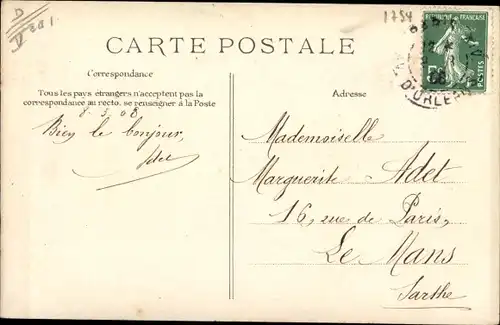 D
1754
RÉPUBLIQUE FRANÇAISE
POSTES
D'ORLÉA
08
CARTE POSTALE
Correspondance
Tous les pays étrangers n'acceptent pas la
correspondance au recto. se renseigner à la Poste
8.3.08
Bien le bonjour,
Adet
Adresse
Mademoiselle
Marguerite Adet
16, rue de Paris,
Le Mans
Sarthe